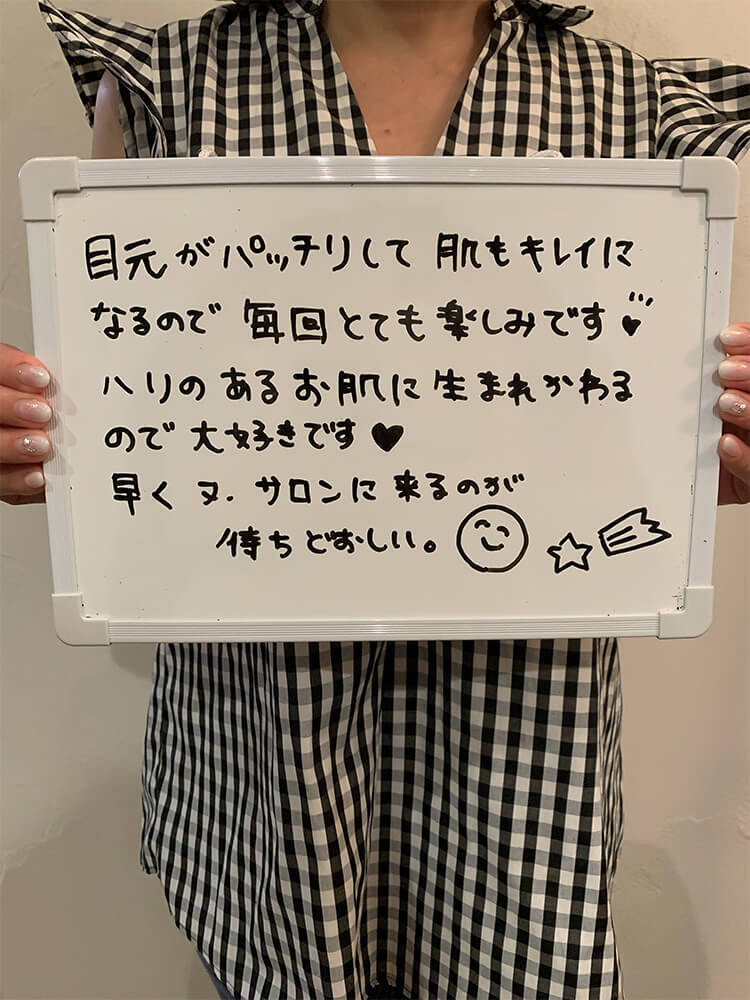 目元がパッチリして 肌もキレイに
なるので 毎回とても楽しみです♥
ハリのあるお肌に生まれかわる
ので 大好きです♥
早くヌ.サロンに来るのが
待ちどおしい。